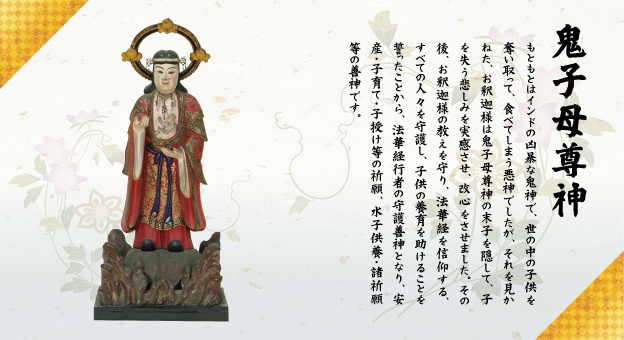 鬼子母尊神
もともとはインドの凶暴な鬼神で、世の中の子供を
奪い取って、食べてしまう悪神でしたが、それを見か
ねた、お釈迦様は鬼子母尊神の末子を隠して、子
を失う悲しみを実感させ、改心をさせました。その
後、お釈迦様の教えを守り、法華経を信仰する、
すべての人々を守護し、子供の養育を助けることを
誓ったことから、法華経行者の守護善神となり、安
産・子育て・子授け等の祈願、水子供養・諸祈願
等の善神です。